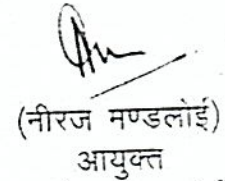 (नीरज मण्डलोई)
आयुक्त